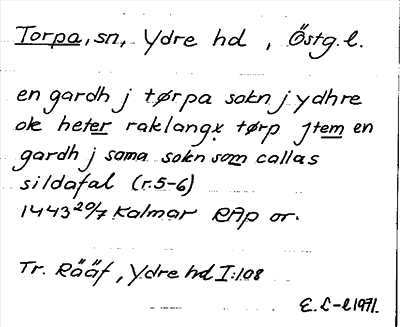 Torpa, sn, Ydre hd, Östg. l.
en gardh j tørpa sokn j ydhre
ok heter raklangx tørp jtem en
gardh j sama sokn som callas
sildafal (r.5-6)
1443 20/7 Kalmar RAp or.
Tr. Rääf, Ydre hd I:108
E. L-l 1971.